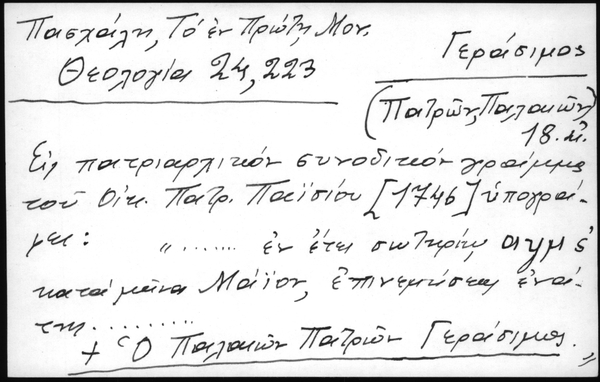 Πασχάλη, Τό ἐν Πρώτῃ Μον.
Θεολογία 24, 223
Γεράσιμος
(Πατρῶν, Παλαιῶν)
18. κ.
Εἰς πατριαρχικόν συνοδικόν γράμμα
τοῦ Οἰκ. Πατρ. Παϊσίου [1746] ὑπογρά-
φει: „....... ἐν ἔτει σωτηρίῳ αψμς΄
κατά μῆνα Μάϊον, ἐπινεμήσεως ἐνά-
της.........
+ Ὁ Παλαιῶν Πατρῶν Γεράσιμος. „